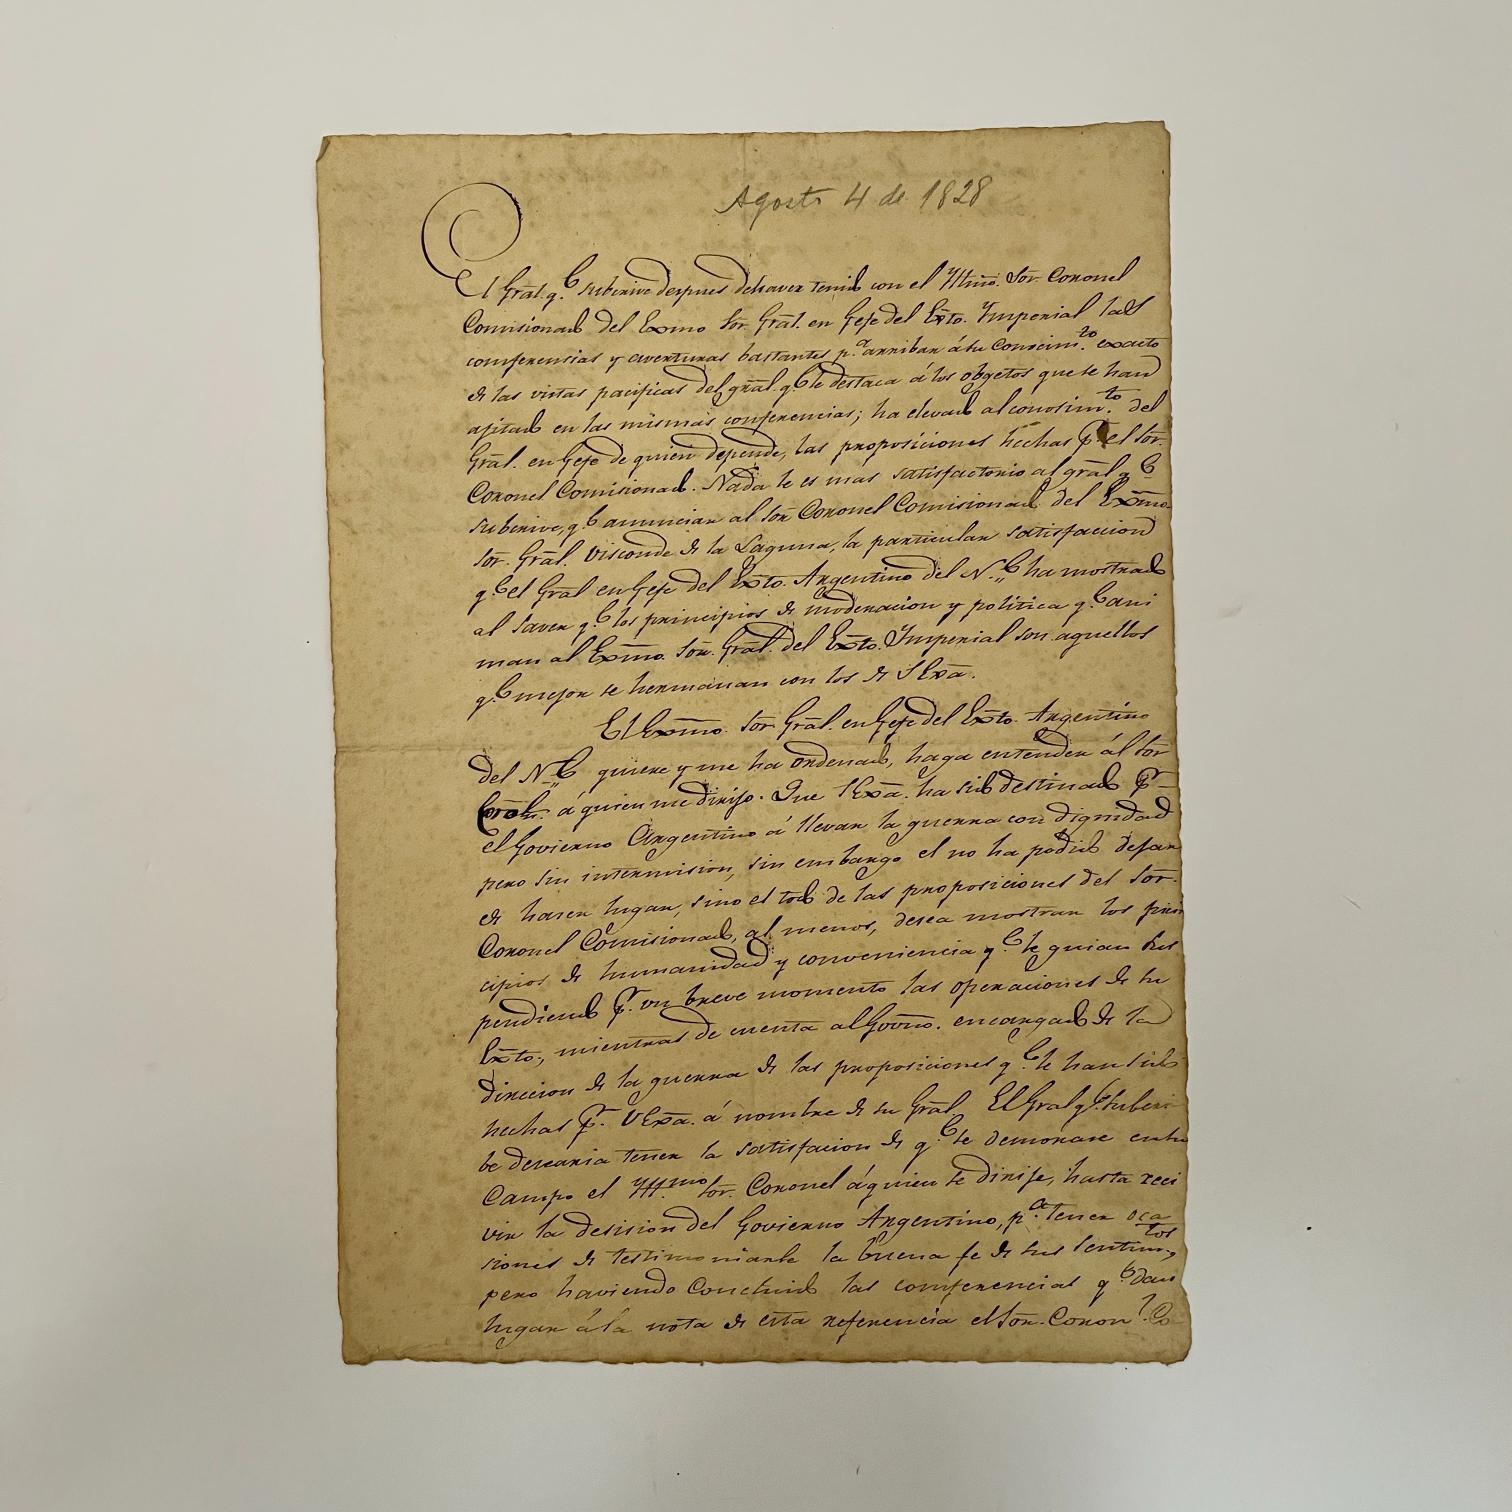 Agosto 4 de 1828
El Grāl. q.e subscrive despues dehaver tenido con el Yllmō. Sōr. Coronel
Comisionado del Exmo Sōr. Grāl. en Gefe del Exto. Ymperial las
conferensias y averturas bastantes p.a arribar á su conocim.to exacto
de las vistas pacificas del grāl. q.e le destaca á los obgetos que se han
ajitado en las mismas conferencias; ha elevado al conosim.to del
Grāl. en Gefe de quien depende, las proposiciones hechas p.r el Sōr.
Coronel Comisionado. Nada le es mas satisfactorio al grāl q.e
subscrive, q.e anunciar al Sōr Coronel Comisionado del Exmo.
Sōr. Grāl. Visconde de la Laguna, la particular satisfaccion
q.e el Grāl en Gefe del Exto. Argentino del N.e ha mostrado
al saver q.e los principios de moderacion y politica q.e ani
man al Exmo. Sōr. Grāl. del Exto. Ymperial son aquellos
q.e mejor se hermanan con los de S Exa.
El Exmo. Sōr. Grāl. en Gefe del Exto. Argentino
del N.e quiere y me ha ordenado, haga entender ál Sōr
á quien me dirijo. Que S Exa. ha sido destinado p.r
el Govierno Argentino á llevar la guerra con dignidad
pero sin intermision, sin embargo el no ha podido dejar
de haser lugar, sino el todo de las proposiciones del Sōr.
Coronel Comisionado, al menos, desea mostrar los prin
cipios de humanidad y conveniencia q.e le guian sus
pendiendo p.r un breve momento las operaciones de su
Exto., mientras de cuenta al Govno. encargado de la
direccion de la guerra de las proposiciones q.e le han sido
hechas p.r V Exa. á nombre de su Grāl. El Gral q.e subscri
be desearia tener la satisfacion de q.e se demorase en su
Campo el Yll.mo Sōr. Coronel á quien se dirije, hasta reci
vir la desision del Govierno Argentino, p.a tener oca
siones de testimoniarle la buena fe de sus sentim.tos,
pero haviendo concluido las conferencias q.e dan
lugar á la nota de esta referencia el Sōr. Coron.l Co